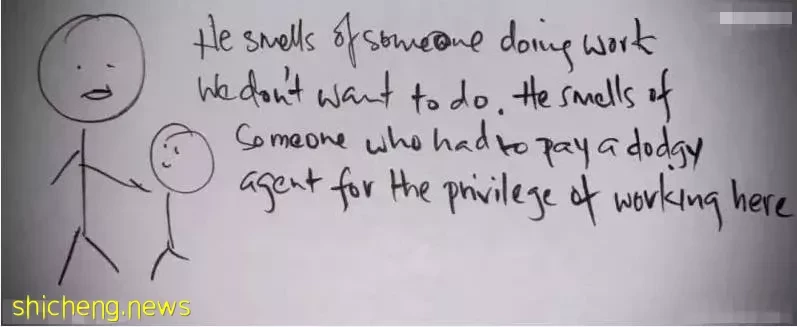 He smells of someone doing work
We don't want to do. He smells of
someone who had to pay a dodgy
agent for the privilege of working here
shicheng.news